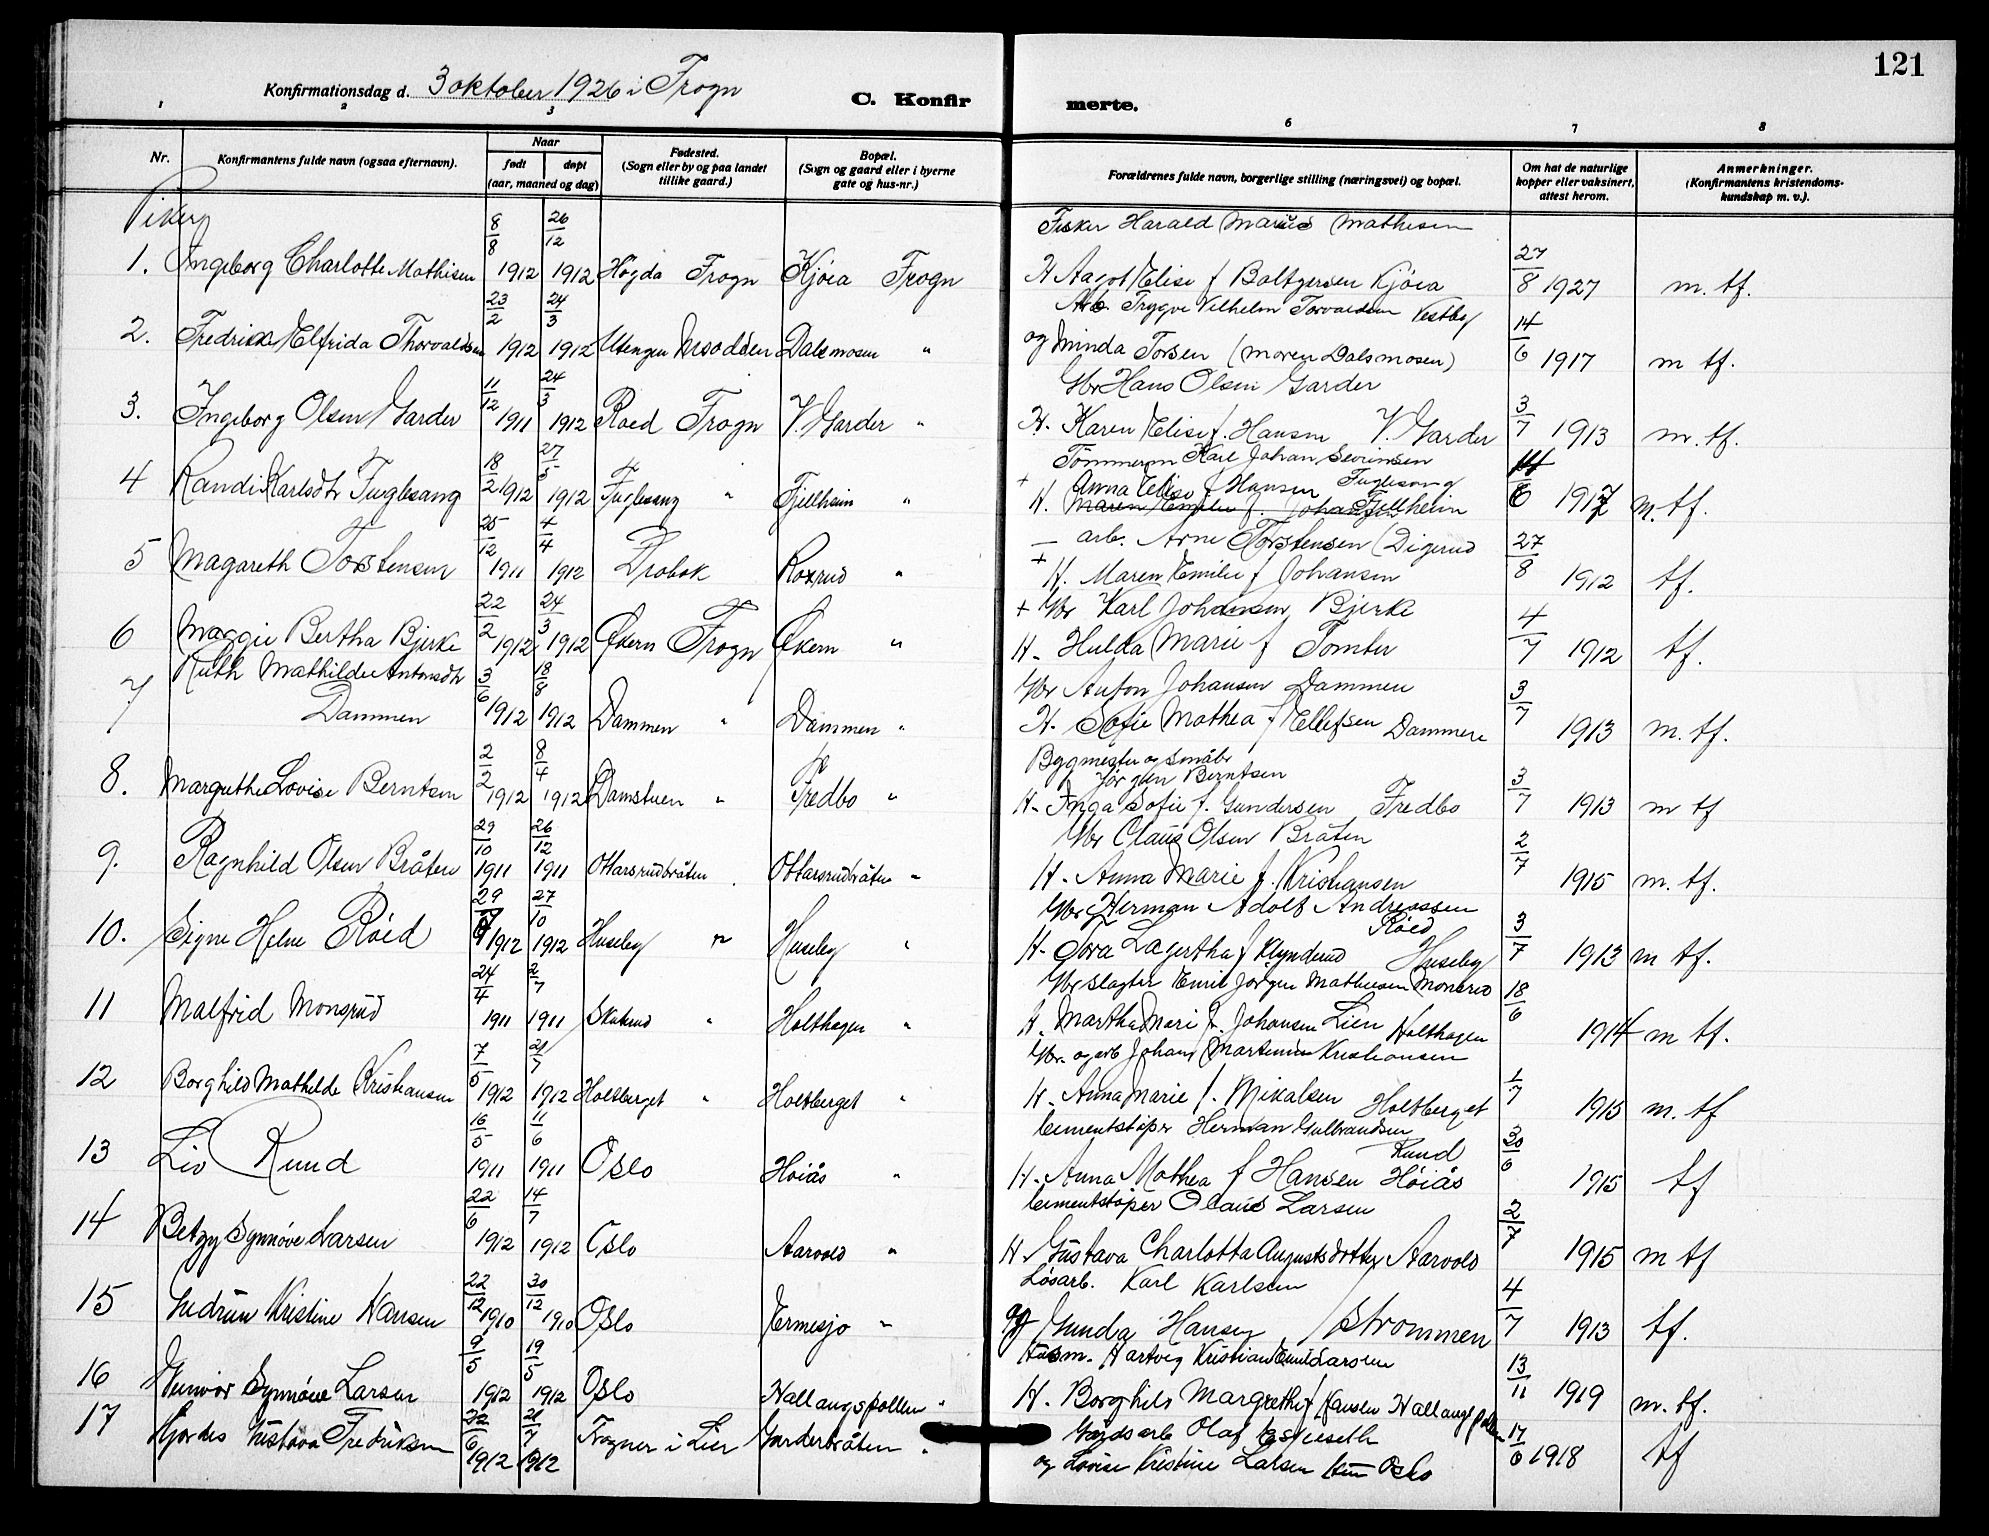 121
Konfirmationsdag d. 3 oktober 1926 i Frogn
C. Konfirmerte.
1 2 3 6 7 8
Nr.
Konfirmantens fulde navn (ogsaa efternavn).
Naar
født døpt
(aar, maaned og dag)
Fødested.
(Sogn eller by og paa landet
tillike gaard.)
Bopæl.
(Sogn og gaard eller i byerne
gate og hus-nr.)
Forældrenes fulde navn, borgerlige stilling (næringsvei) og bopæl.
Om hat de naturlige
kopper eller vaksinert,
attest herom.
Anmerkninger.
(Konfirmantens kristendoms-
kundskap m. v.).
Piker
Fisker Harald Marius Mathisen
1. Ingeborg Charlotte Mathisen 8/8 1912 26/12 1912 Høgda Frogn Kjøia Frogn
H Aagot Elise f Boltgersen Kjøia 27/8 1927 m. tf.
Arb. Trygve Vilhelm Torvaldsen Vestby
2. Fredrikke Elfrida Thorvaldsen 23/2 1912 24/3 1912 Utengen Nesodden Dalsmosen "
og Minda Torsen (moren Dalsmosen) 14/6 1917 m tf.
Gbr Hans Olsen Garder
3. Ingeborg Olsen Garder 11/12 1911 24/3 1912 Roed Frogn V. Garder "
H. Karen Elise f. Hansen V. Garder 3/7 1913 m. tf.
Tømmerm Karl Johan Severinsen Fuglesang
4 Randi Karlsdtr Fuglesang 18/2 1912 27/5 1912 Fuglesang " Fjellheim "
+ H. Anna Elise f Hansen Fjellheim
Maren Emilie f. Johansen
6 1917 m. tf.
arb. Arne Torstensen (Digerud
5 Magareth Torstensen 25/12 1911 4/4 1912 Drøbak Roxrud "
+ H. Maren Emilie f Johansen 27/8 1912 tf.
+ Gbr Karl Johansen Bjerke
6 Maggie Bertha Bjerke 22/2 1912 24/3 1912 Økern Frogn Økern "
H. Hulda Marie f Tomter 4/7 1912 tf.
Gbr Anton Johansen Dammen
7 Ruth Mathilde Antonsdtr
Dammen 3/6 1912 18/8 1912 Dammen " Dammen "
H. Sofie Mathea f Ellefsen Dammen 3/7 1913 m. tf.
Bygmester og småbr
Jørgen Berntsen
8. Margrethe Lovise Berntsen 2/2 1912 8/4 1912 Damstuen " Fredbo "
H. Inga Sofie f. Gundersen Fredbo 3/7 1913 m tf
Gbr Claus Olsen Bråten
9. Ragnhild Olsen Bråten 29/10 1911 26/12 1911 Ottarsrudbråten . Ottarsrudbråten "
H. Anna Marie f. Kristiansen 2/7 1915 m. tf.
Gbr Herman Adolf Andreassen
Røed
10. Signe Helene Røed 29/9 1912 27/10 1912 Huseby " Huseby "
H. Tora Lagertha f Klynderud Huseby 3/7 1913 m tf.
Gbr slagter Emil Jørgen Mathiesen Monsrud
11 Malfrid Monsrud 24/4 1911 2/7 1911 Skukrud " Holthagen "
H. Martha Mari f. Johansen Lien Holthagen 18/6 1914 m tf.
Gbr. og arb Johan Martinius Kristiansen
12 Borghild Mathilde Kristiansen 7/5 1912 21/7 1912 Holtberget " Holtberget "
H. Anna Marie f. Mikalsen Holtberget 1/7 1915 m. tf
Cementstøper Herman Gulbrandsen
Ruud
13 Liv Ruud 16/5 1911 11/6 1911 Oslo Høiås "
H. Anna Mathea f Hansen Høiås 30/6 1915 tf
Cementstøper Olaus Larsen
14 Betzy Synnøve Larsen 22/6 1912 14/7 1912 Oslo Aarvold "
H. Gustava Charlotta Augustsdotter Aarvold 2/7 1915 m tf
Løsarb. Karl Karlsen
15 Gudrun Kristine Hansen 22/12 1910 30/12 1910 Oslo Ermesjø "
og Gunda Hansen Strømmen 4/7 1913 tf.
Hartvig Kristian Emil Larsen
16 Gunvor Synnøve Larsen 9/5 1912 19/5 1912 Oslo Hallangspollen "
H. Borghild Margrethe f Hansen Hallangspollen 13/11 1919 m. tf.
Gårdsarb Olaf Espeseth
17 Hjørdis Gustava Fredriksen 22/6 1912 21/7 1912 Frogner i Lier Garderbråten "
og Lovise Kristine Larsen Oslo 17/6 1918 tf